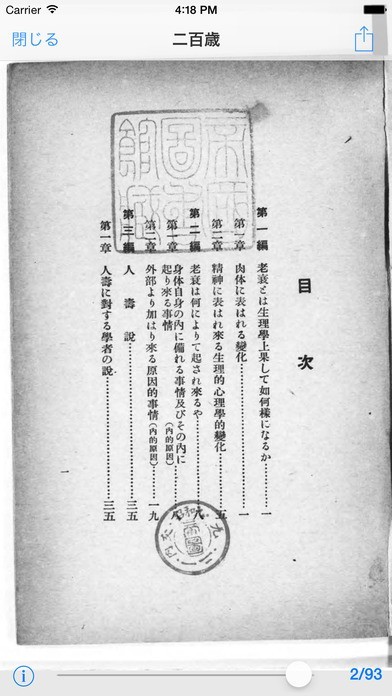 Carrier 4:18 PM
閉じる 二百歳
目次
第一編 老衰とは生理學上果して如何樣になるか………一
第一章 肉体に表はれる變化………一
第二章 精神に表はれ來る生理的心理學的變化………五
第二編 老衰は何によりて起され來るや………
第一章 身体自身の内に備れる事情及びその内に
起り來る事情(内的原因)………八
第二章 外部より加はり來る原因的事情(内的原因)………一九
第三編 人壽說………三五
第一章 人壽に對する學者の說………三五
2/93